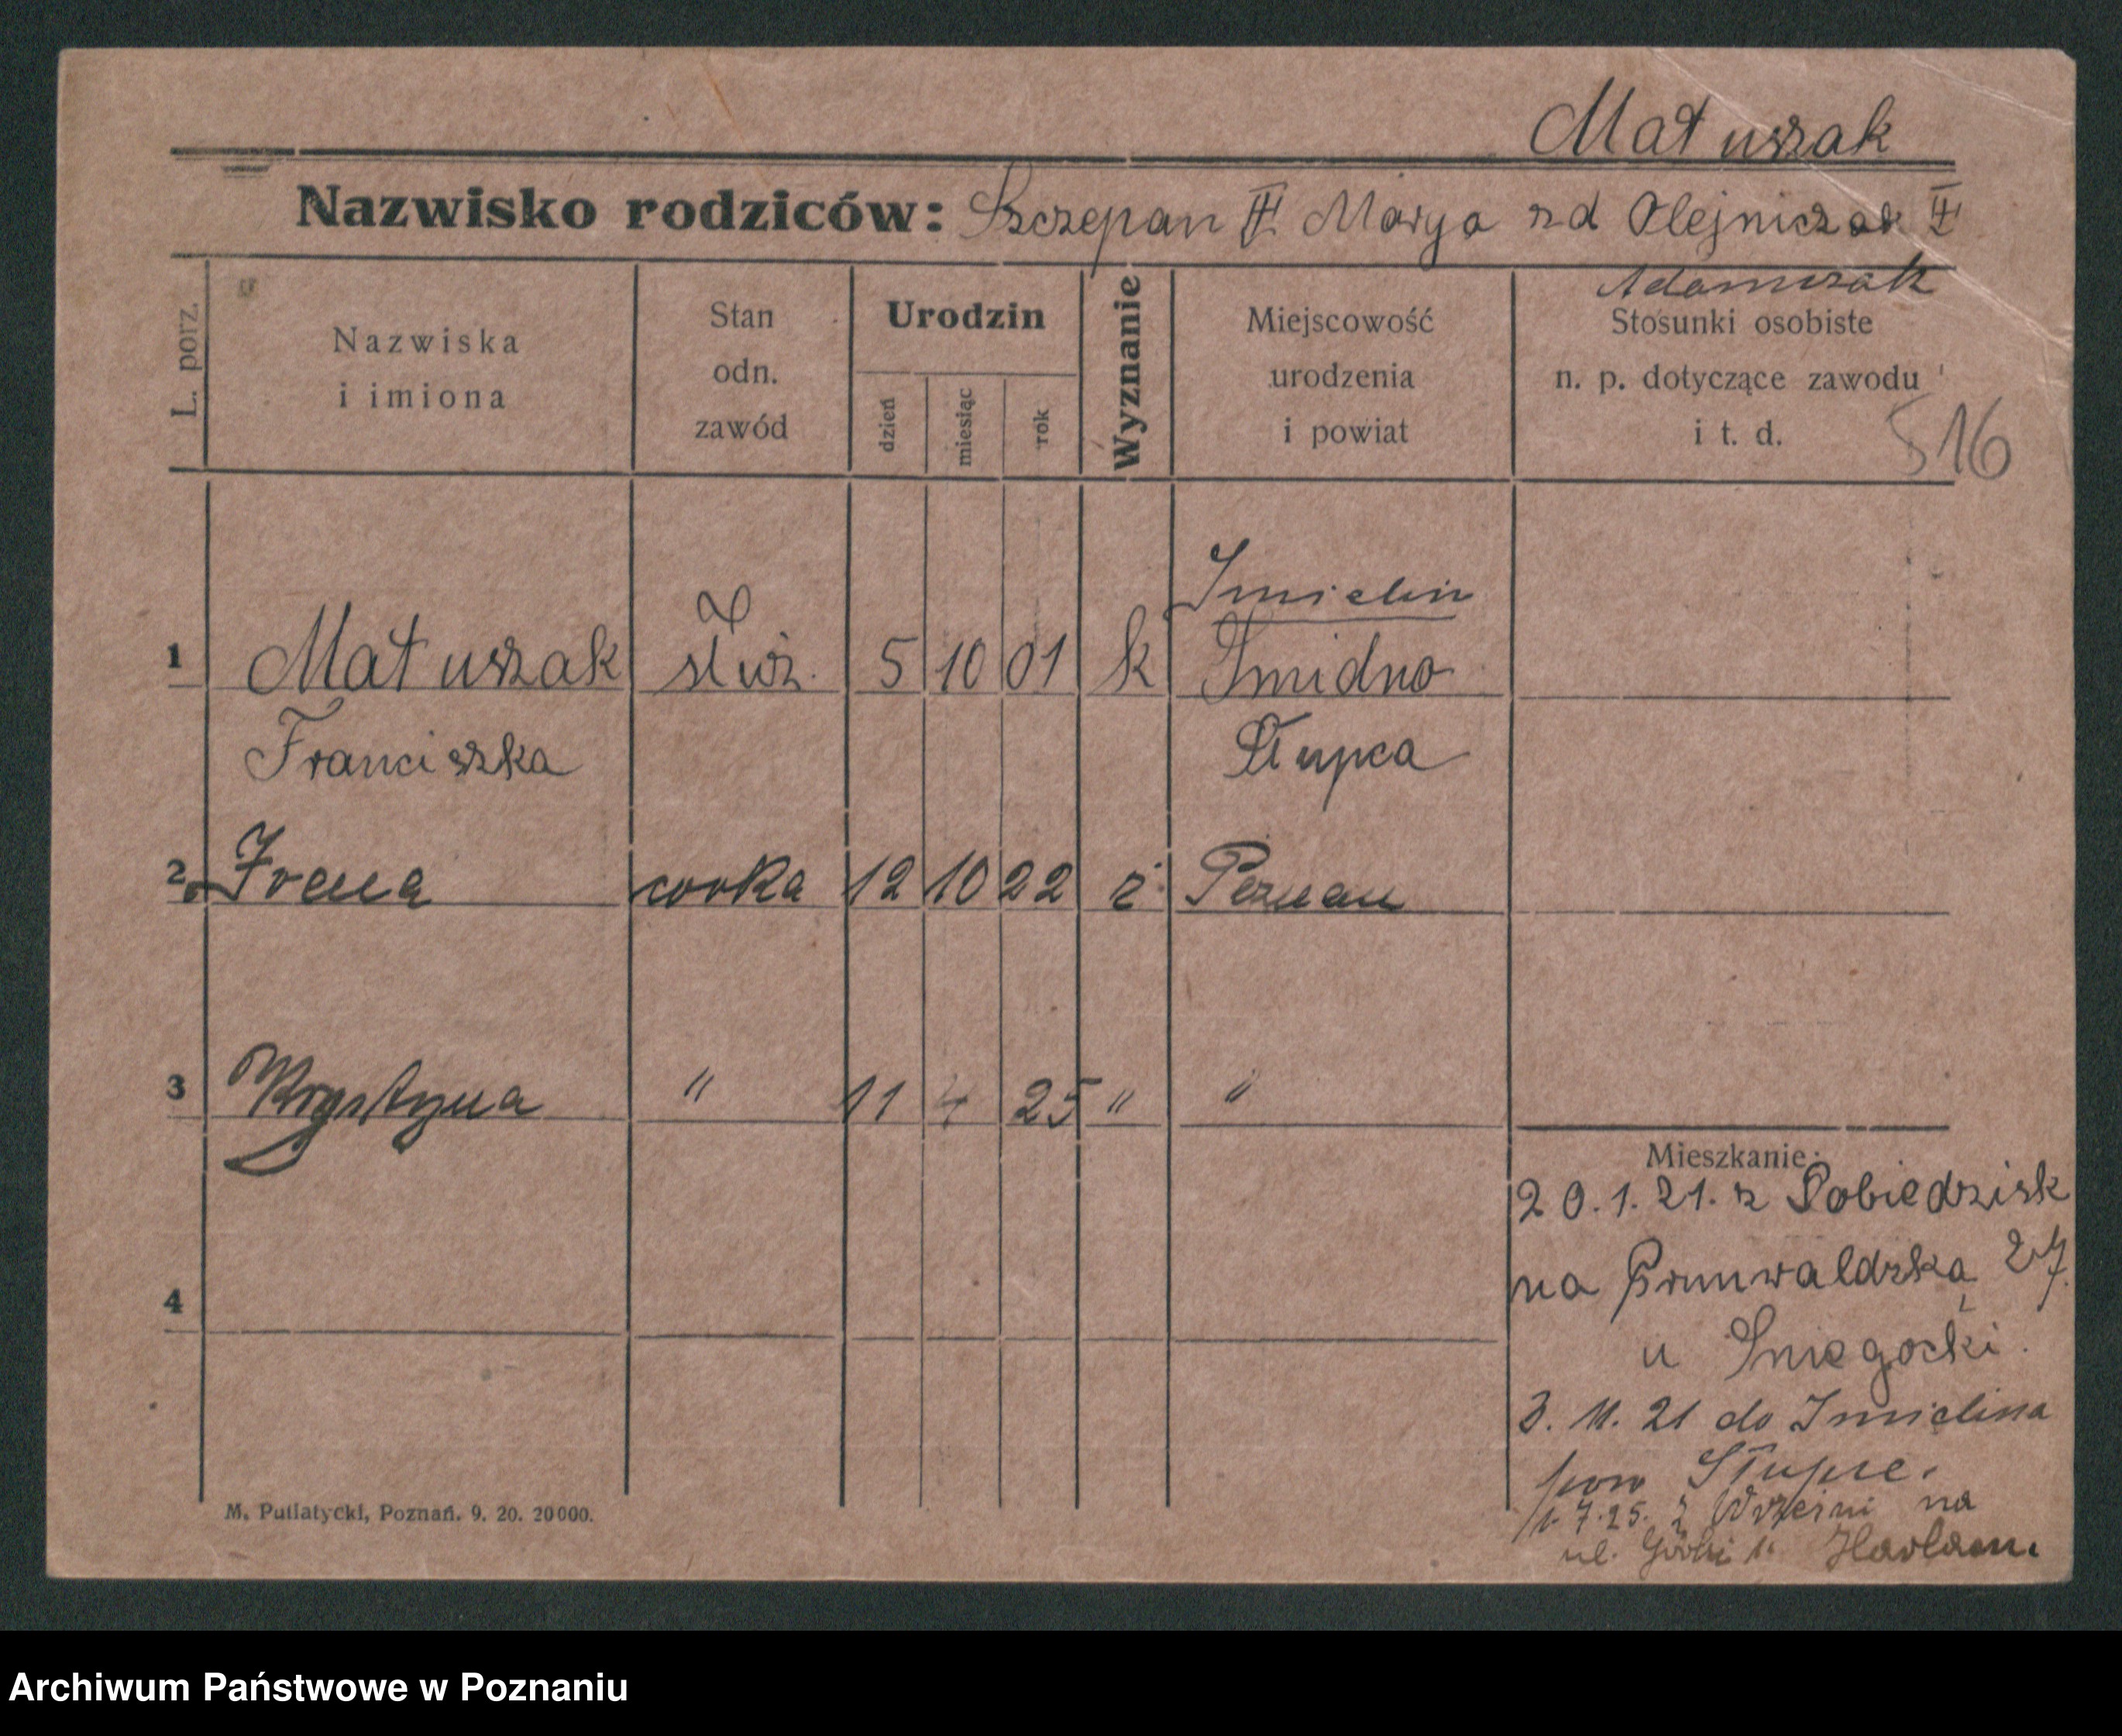 Matuszak
Nazwisko rodziców: Szczepan Marya zd Olejniczak
Adamczak
L. porz.
Nazwiska
i imiona
Stan
odn.
zawód
Urodzin
dzień
miesiąc
rok
Wyznanie
Miejscowość
urodzenia
i powiat
Stosunki osobiste
n. p. dotyczące zawodu
i t. d.
516
Imielin
1 Matuszak służ. 5 10 01 k
Franciszka Słupca
2 Irena corka 12 10 22 Poznan
3 Krystyna " 11 4 25 " "
Mieszkanie:
20. 1. 21. z Pobiedzisk
na Grunwaldzką 27.
4
u Sniegocki.
3. 11. 21 do Imielina
pow Słupce.
1. 7. 25. z Wrześni na
ul.
M. Putiatycki, Poznań. 9. 20. 20000.
Archiwum Państwowe w Poznaniu